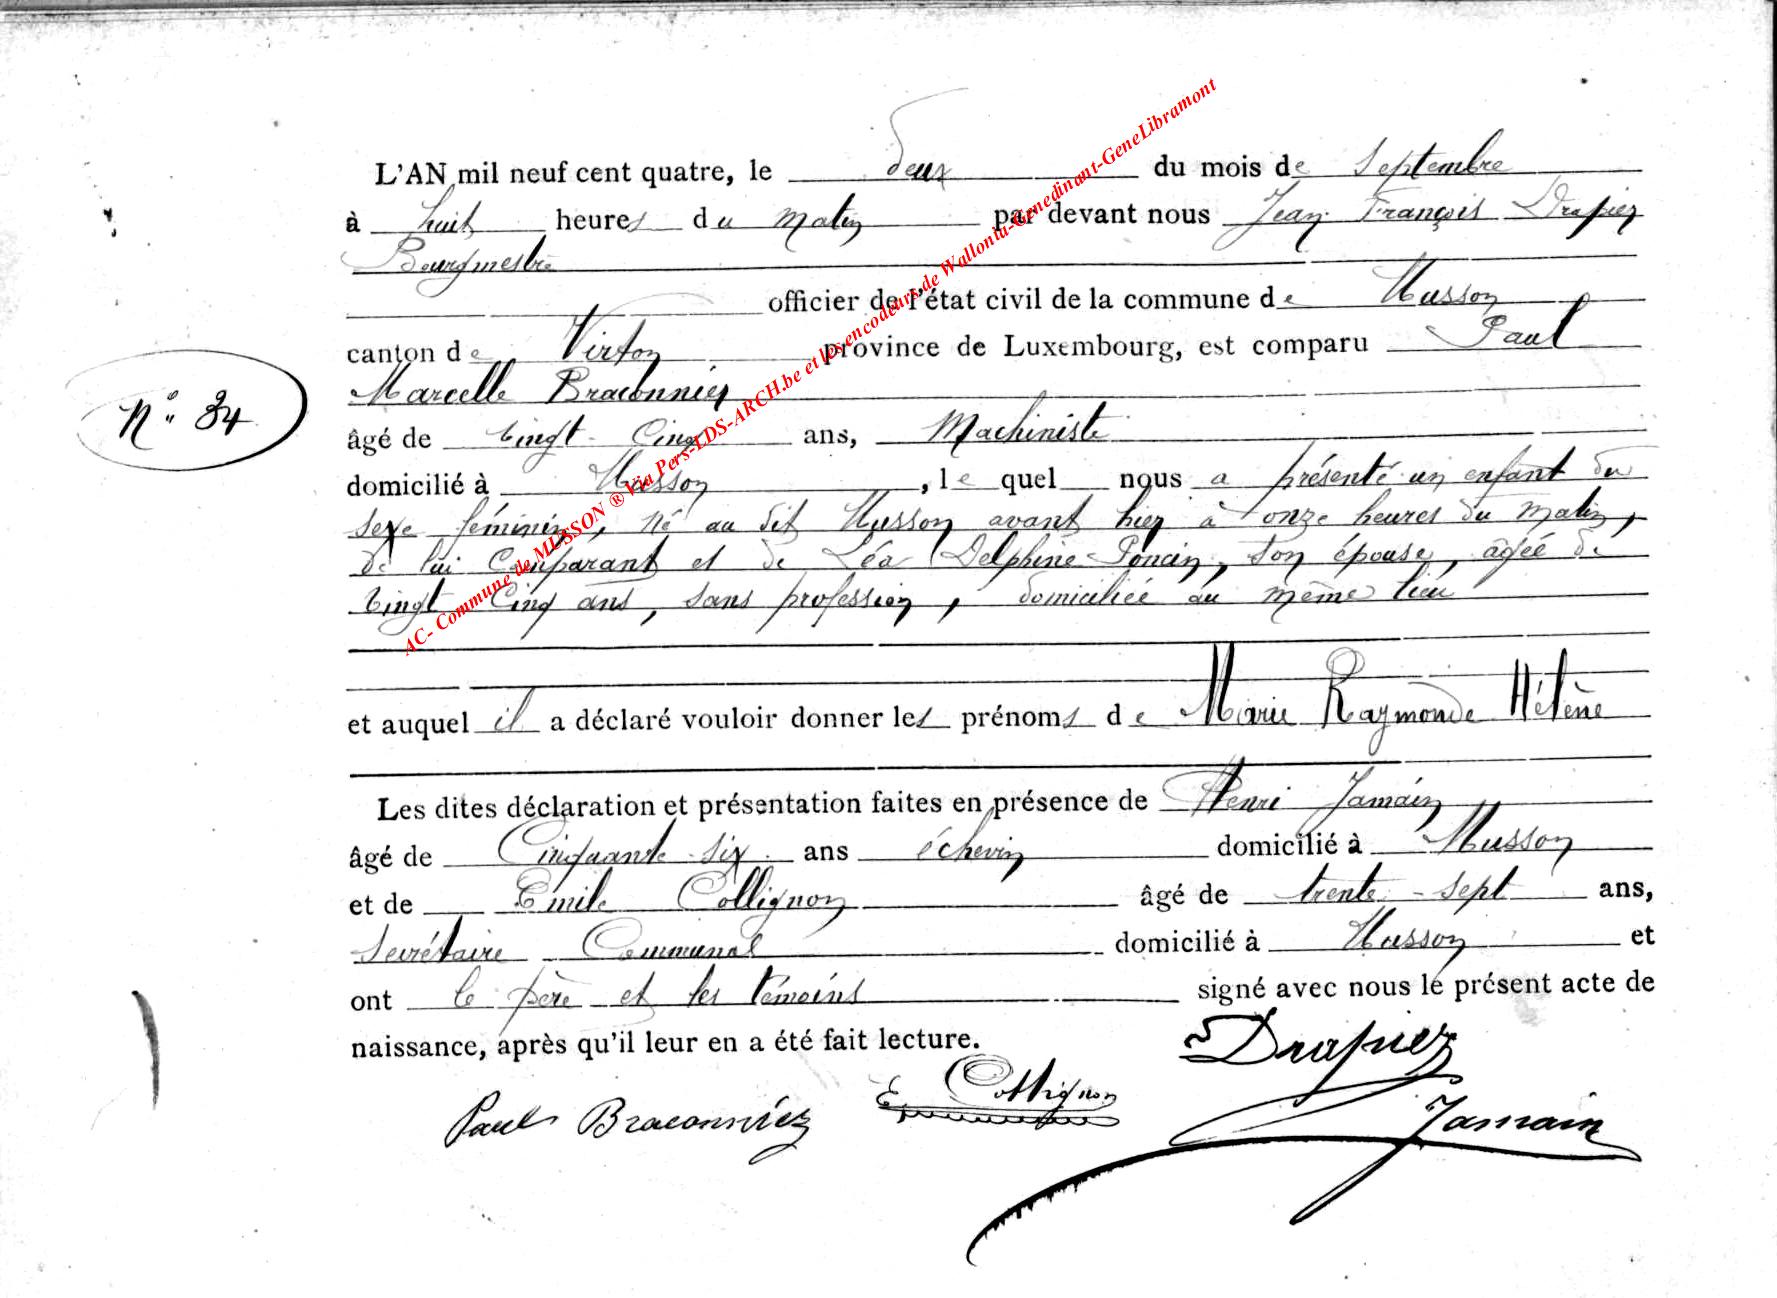 L'AN mil neuf cent quatre, le deux du mois de Septembre
à huit heures du matin par devant nous Jean François Drapier
Bourgmestre
officier de l'état civil de la commune de Musson
canton de Virton province de Luxembourg, est comparu Paul
Marcelle Braconnier
N° 34
âgé de vingt-cinq ans, Machiniste
domicilié à Musson, le quel nous a présenté un enfant du
sexe féminin, né au dit Musson avant hier à onze heures du matin,
de lui Comparant et de Léa Delphine Poncin, son épouse, âgée de
vingt Cinq ans, sans profession, domiciliée au même lieu
et auquel il a déclaré vouloir donner les prénoms de Marie Raymonde Hélène
Les dites déclaration et présentation faites en présence de Henri Jamain
âgé de Cinquante-six ans échevin domicilié à Musson
et de Emile Collignon âgé de trente-sept ans,
Secrétaire Communal domicilié à Musson et
ont le père et les témoins signé avec nous le présent acte de
naissance, après qu'il leur en a été fait lecture.
Drapier
E Collignon
Paul Braconnier
Jamain
AC- Commune de MUSSON ® Via Pers-LDS-ARCH.be et les encodeurs de Wallonia-Genedinant-GeneLibramont